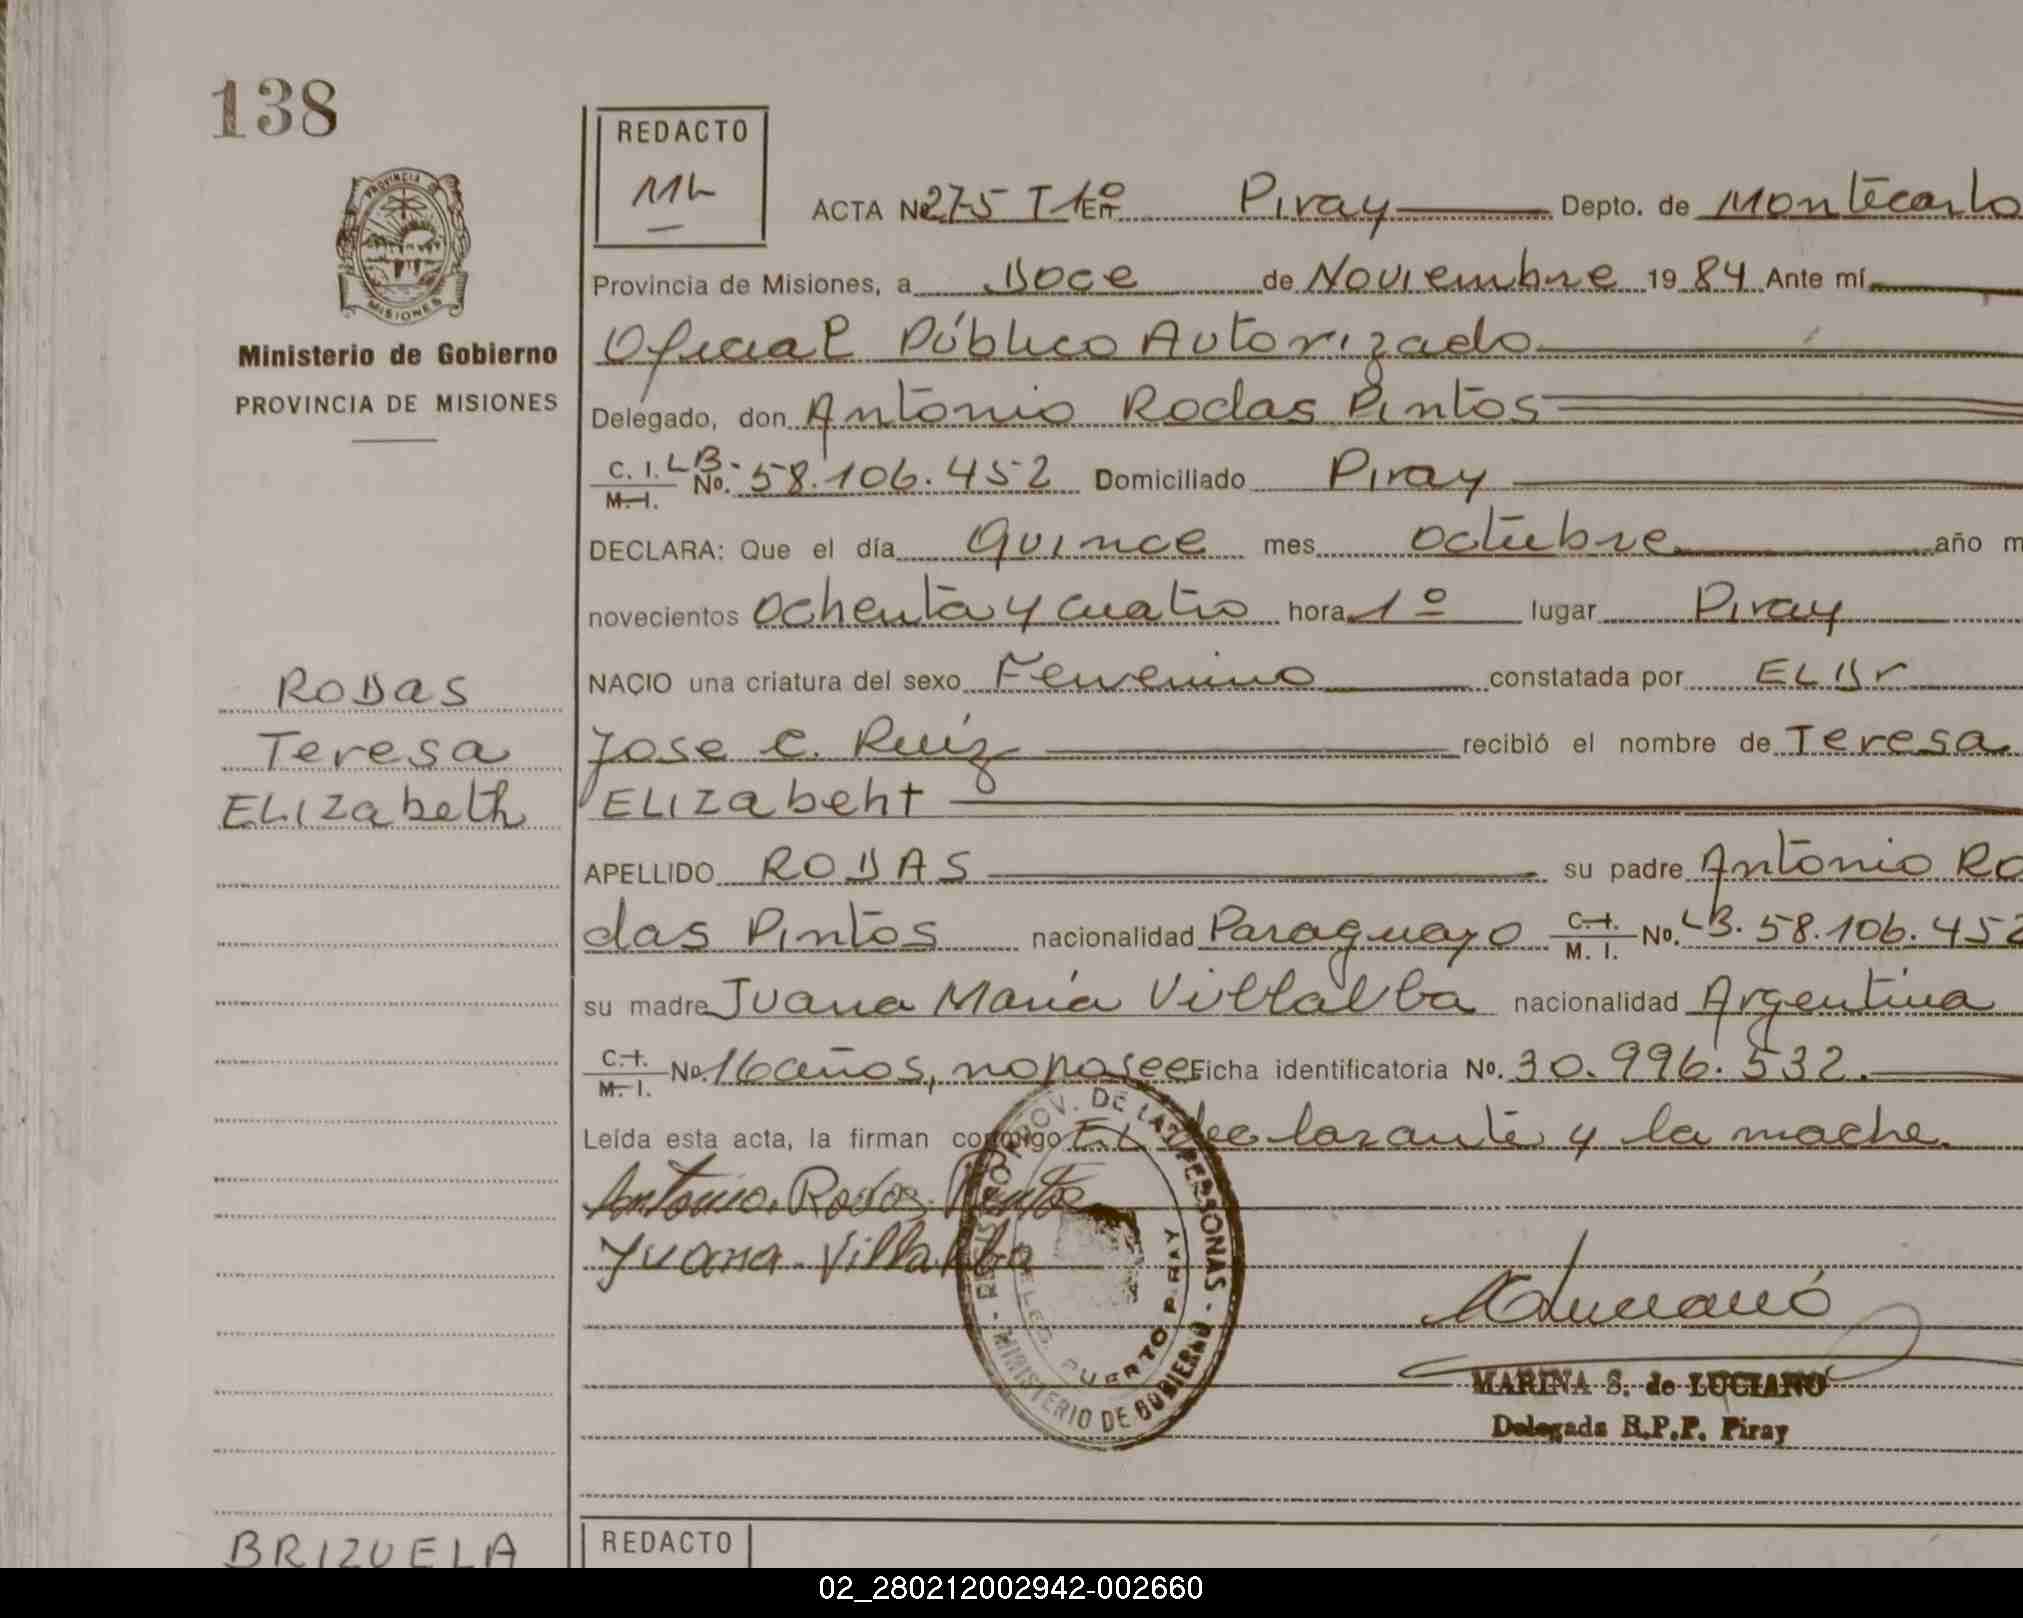 138
PROVINCIA DE
MISIONES
Ministerio de Gobierno
PROVINCIA DE MISIONES
RODAS
Teresa
ELIZabeth
BRIZUELA
REDACTO
ML
ACTA No. 275 T 1º En Piray Depto. de Montecarlo
Provincia de Misiones, a Doce de Noviembre 19 84 Ante mí
Oficial Público Autorizado
Delegado, don Antonio Rodas Pintos
C. I. M. I. LB. No. 58.106.452 Domiciliado Piray
DECLARA: Que el día Quince mes octubre año m
novecientos ochenta y cuatro hora 1º lugar Piray
NACIO una criatura del sexo Femenino constatada por EL Dr
Jose C. Ruíz recibió el nombre de Teresa
ELIZabeht
APELLIDO RODAS su padre Antonio Ro
das Pintos nacionalidad Paraguayo C. I. M. I. No. LB. 58.106.452
su madre Juana María Villalba nacionalidad Argentina
C. I. M. I. No. 16 años, no posee Ficha identificatoria No. 30.996.532.
Leída esta acta, la firman conmigo EL declarante y la madre.
Antonio. Rodas. Pintos
Juana. Villalba
REGISTRO PROV. DE LAS PERSONAS - MINISTERIO DE GOBIERNO -
DELEG. PUERTO PIRAY
MARINA S. de LUCIANO
Delegada R.P.P. Piray
REDACTO
02_280212002942-002660